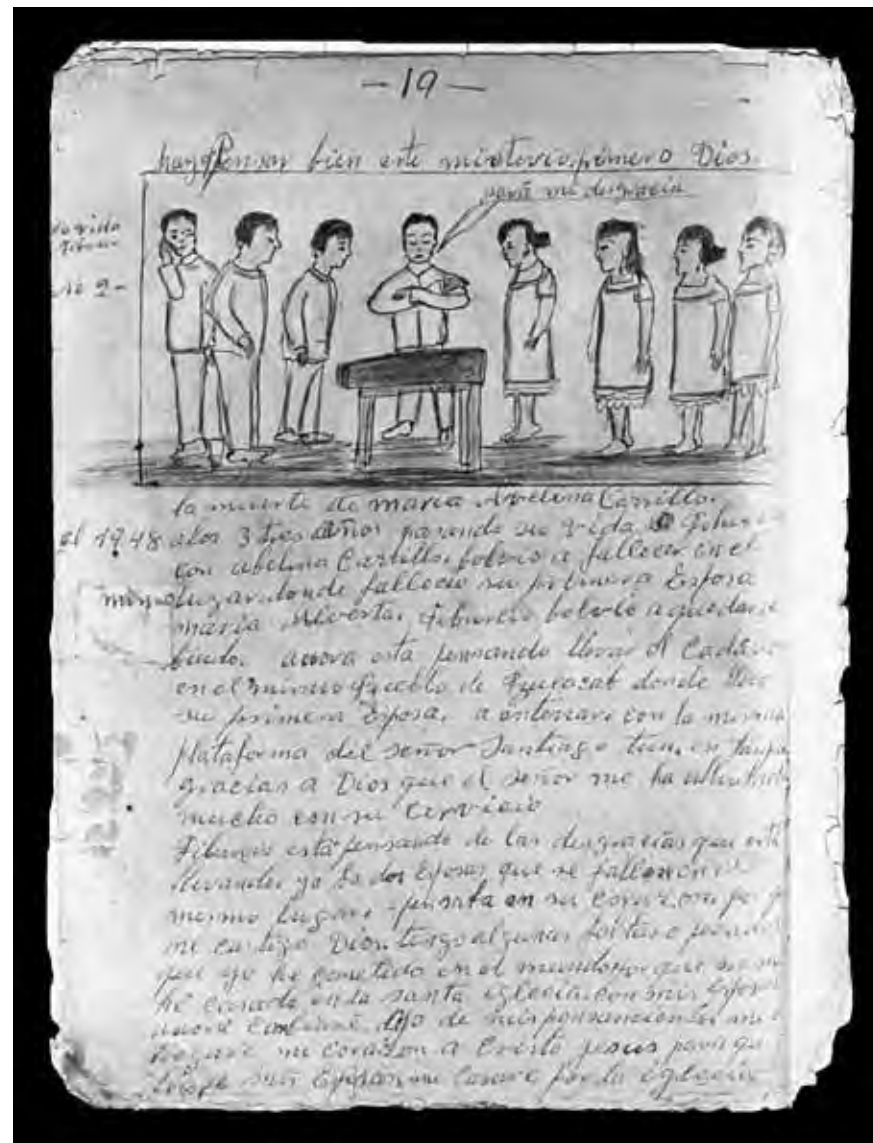 -19-
hay q Pensar bien este misterio, primero Dios.
para mi desgracia
la vida
Tiburcio
No 2-
la muerte de maria Avelina Carrillo.
el 1948 alos 3 tres años pasando su vida Tiburcio
con abelina Carrillo, bolvio a fallecer en el
mismo lugar donde fallecio su primera Esposa
maria Alverta, Tiburcio bolvio a quedarse
biudo. auora esta pensando llevar el Cadaver
en el mismo Pueblo de donde
su primera Esposa, a enterrar con la misma
Plataforma del señor Santiago tun, en
gracias a Dios que el señor me ha
mucho con su Cervicio
Tiburcio está pensando de las desgracias que está
llevando, ya las dos Esposas que se falleron
mismo lugar, en su corazon
mi castigo Dios, tengo algunas o pecados
que yo he cometido en el mundo, que
he casado en la santa iglecia, con mis Esposas
auora
mi corazon a Cristo jesus para que
mis Esposas me Casare por la iglecia